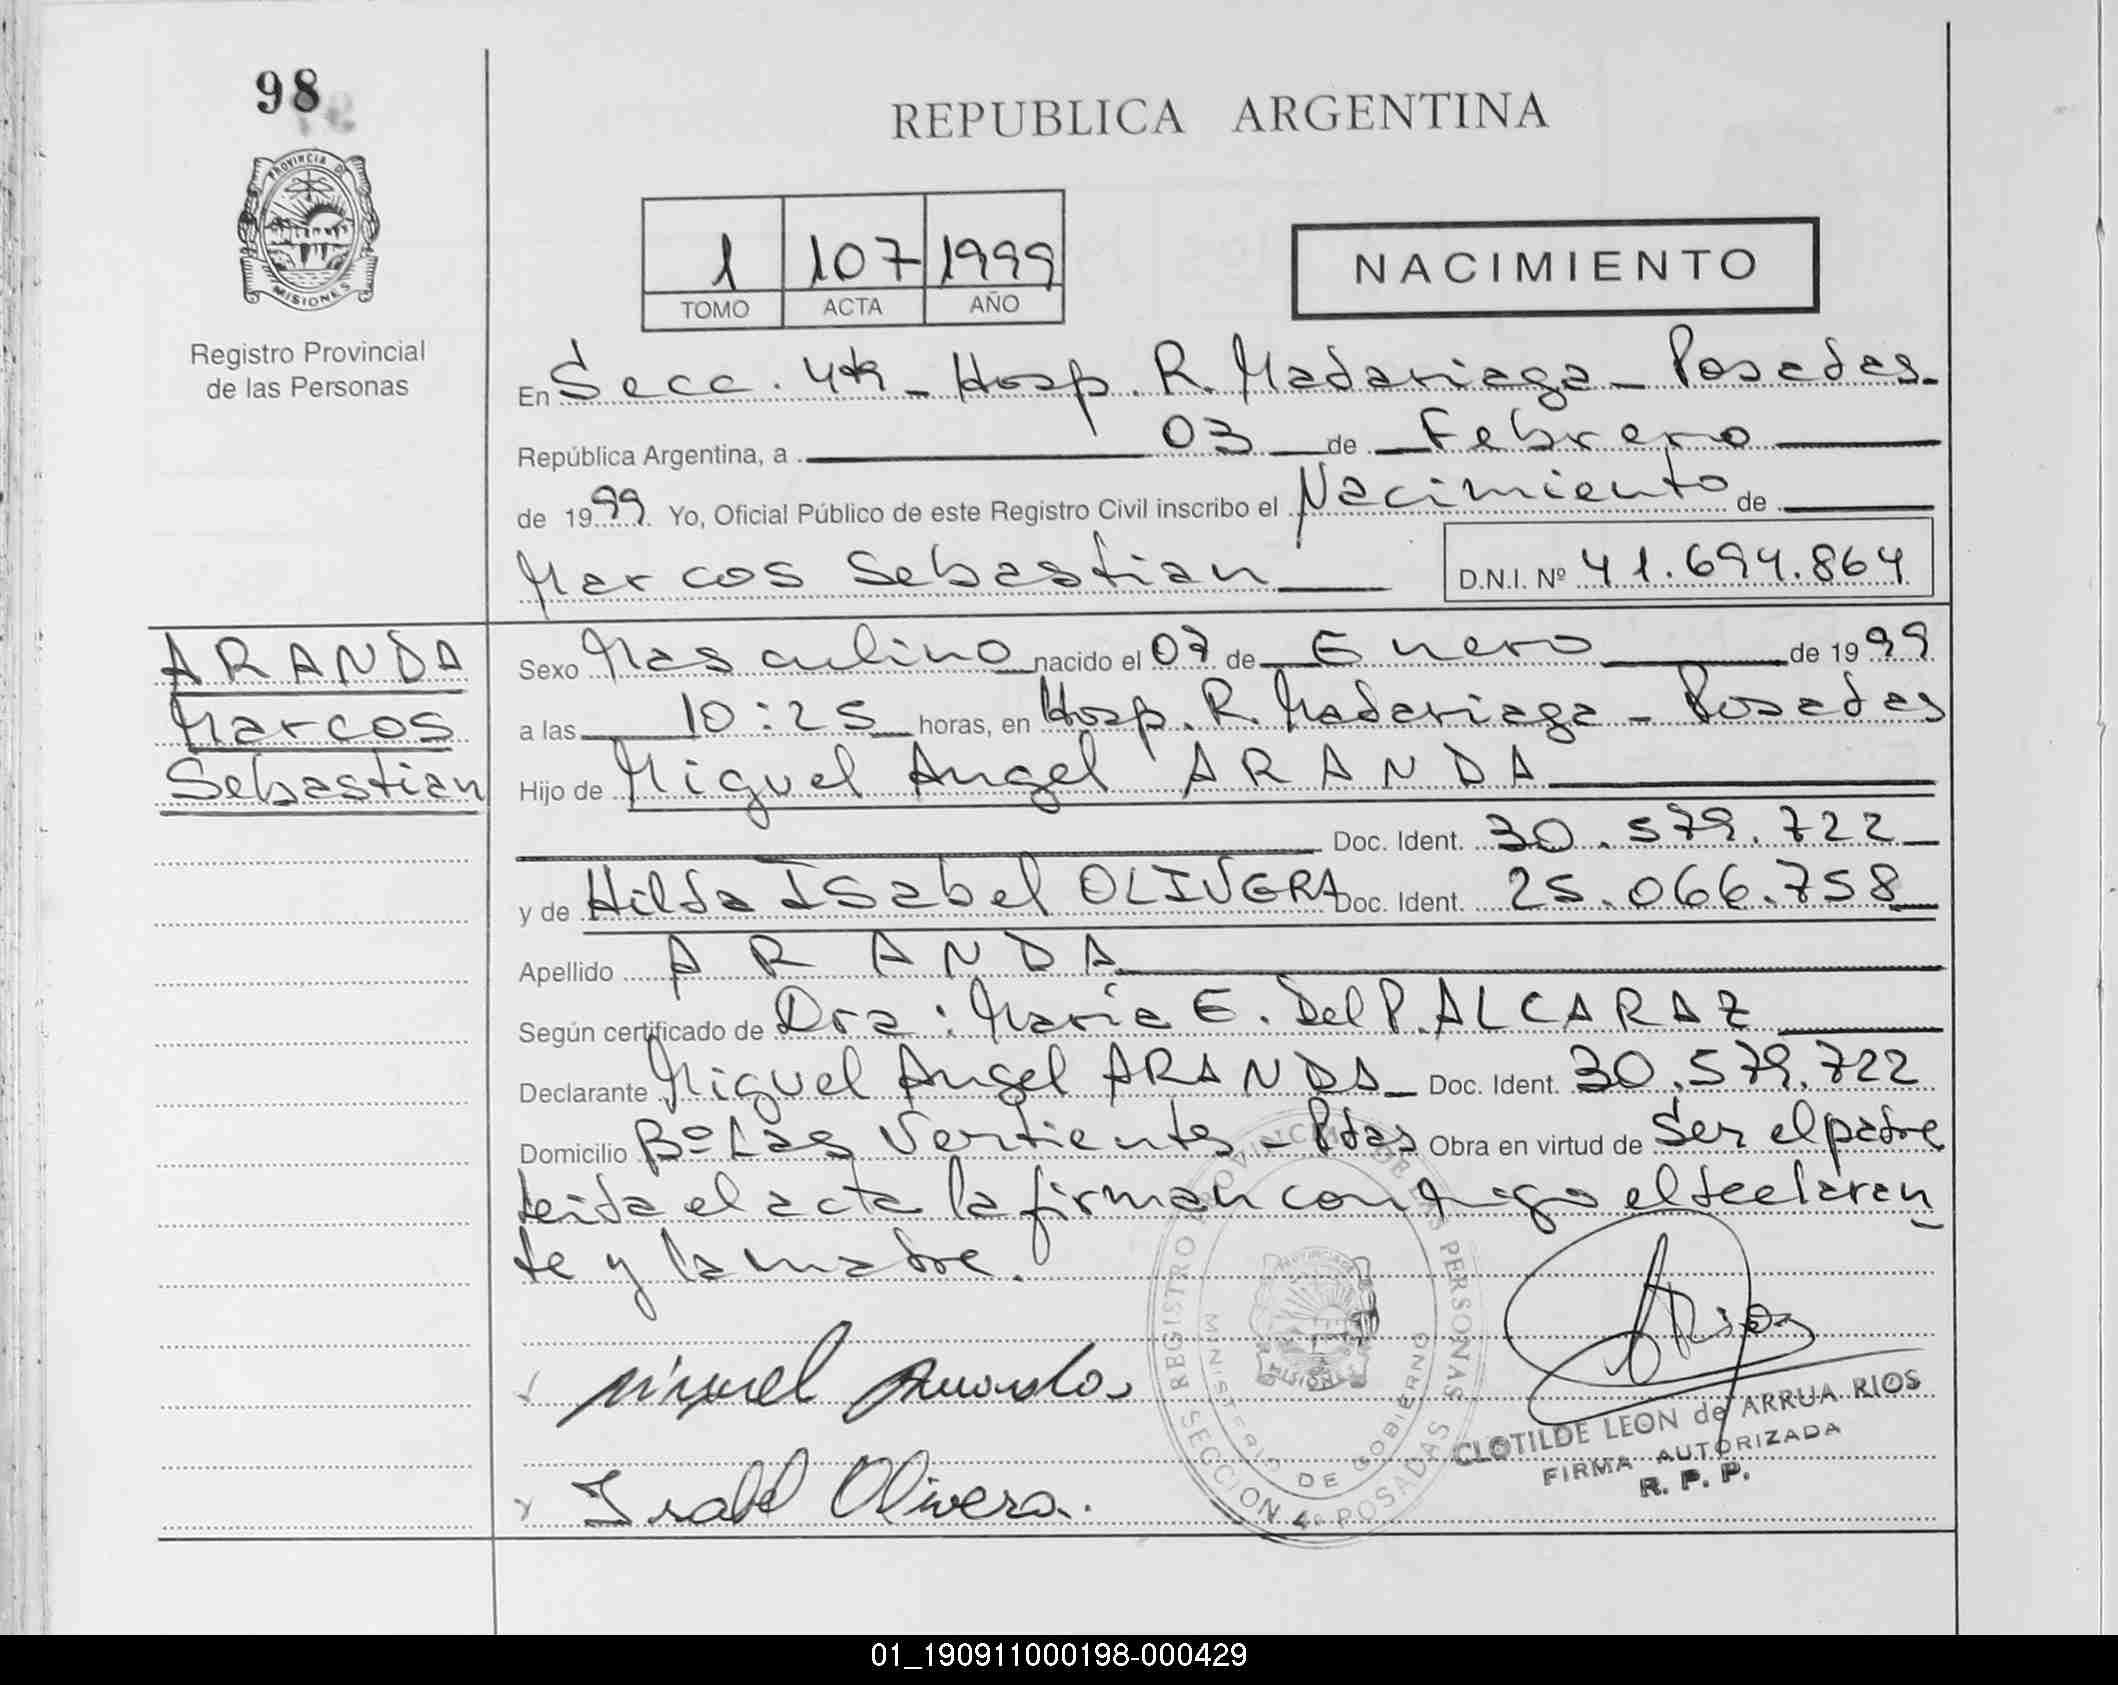 98
PROVINCIA DE
MISIONES
Registro Provincial
de las Personas
REPUBLICA ARGENTINA
1 107 1999
TOMO ACTA AÑO
NACIMIENTO
En Secc. 4ta - Hosp. R. Madariaga - Posadas.
República Argentina, a 03 de Febrero
de 1999 Yo, Oficial Público de este Registro Civil inscribo el Nacimiento de
Marcos Sebastian D.N.I. Nº 41.694.864
ARANDA
Marcos
Sebastian
Sexo Masculino nacido el 07 de Enero de 1999
a las 10:25 horas, en Hosp. R. Madariaga - Posadas
Hijo de Miguel Angel ARANDA
Doc. Ident. 30.579.722
y de Hilda Isabel OLIVERA Doc. Ident. 25.066.758
Apellido ARANDA
Según certificado de Dra: María E. Del P. ALCARAZ
Declarante Miguel Angel ARANDA Doc. Ident. 30.579.722
Domicilio Bº Las Vertientes - Pdas Obra en virtud de Ser el padre
leida el acta la firman conmigo el declaran
te y la madre.
REGISTRO PROVINCIAL DE LAS PERSONAS
MINISTERIO DE GOBIERNO
SECCION 4º POSADAS
Miguel Aranda
Isabel Olivera.
ARios
CLOTILDE LEON de ARRUA RIOS
FIRMA AUTORIZADA
R. P. P.
01_190911000198-000429